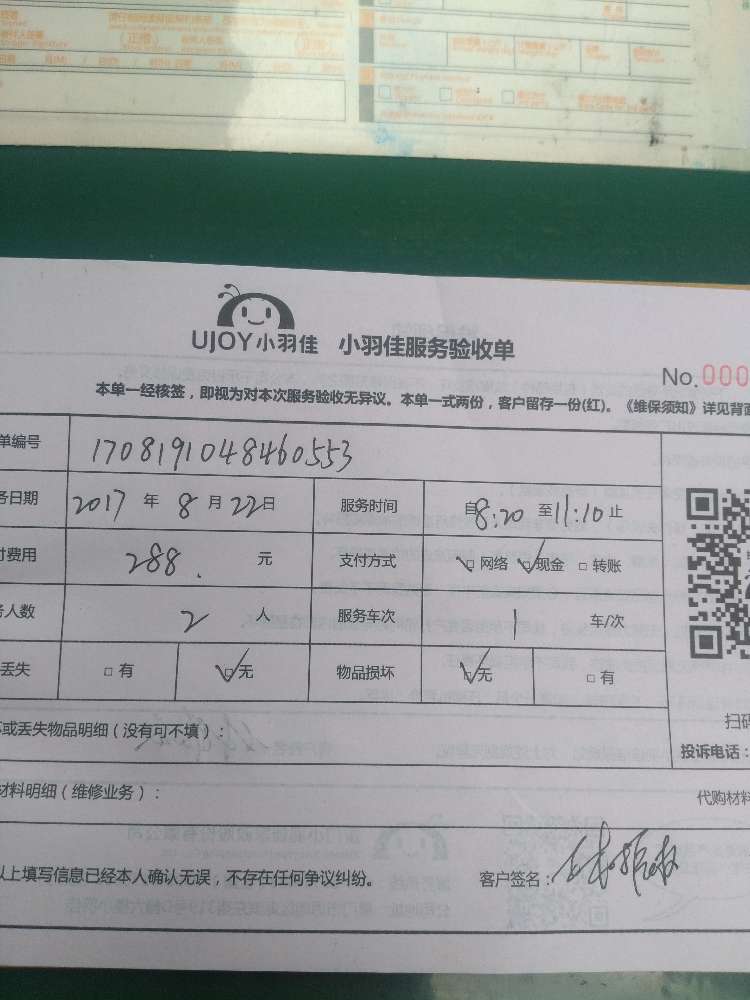 UJOY小羽佳 小羽佳服务验收单
No.000
本单一经核签，即视为对本次服务验收无异议。本单一式两份，客户留存一份(红)。《维保须知》详见背面
单编号 1708191048460553
务日期 2017 年 8 月 22日 服务时间 自8:20 至11:10止
付费用 288. 元 支付方式 □网络 □现金 □转账
务人数 2 人 服务车次 1 车/次
丢失 □有 □无 物品损坏 □无 □有
扫码
坏或丢失物品明细（没有可不填）：
投诉电话：
材料明细（维修业务）：
代购材料
以上填写信息已经本人确认无误，不存在任何争议纠纷。 客户签名：